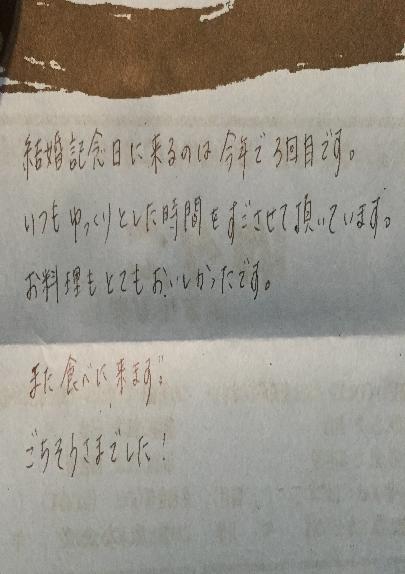 結婚記念日に来るのは今年で3回目です。
いつもゆっくりとした時間をすごさせて頂いています。
お料理もとてもおいしかったです。
また食べに来ます。
ごちそうさまでした！